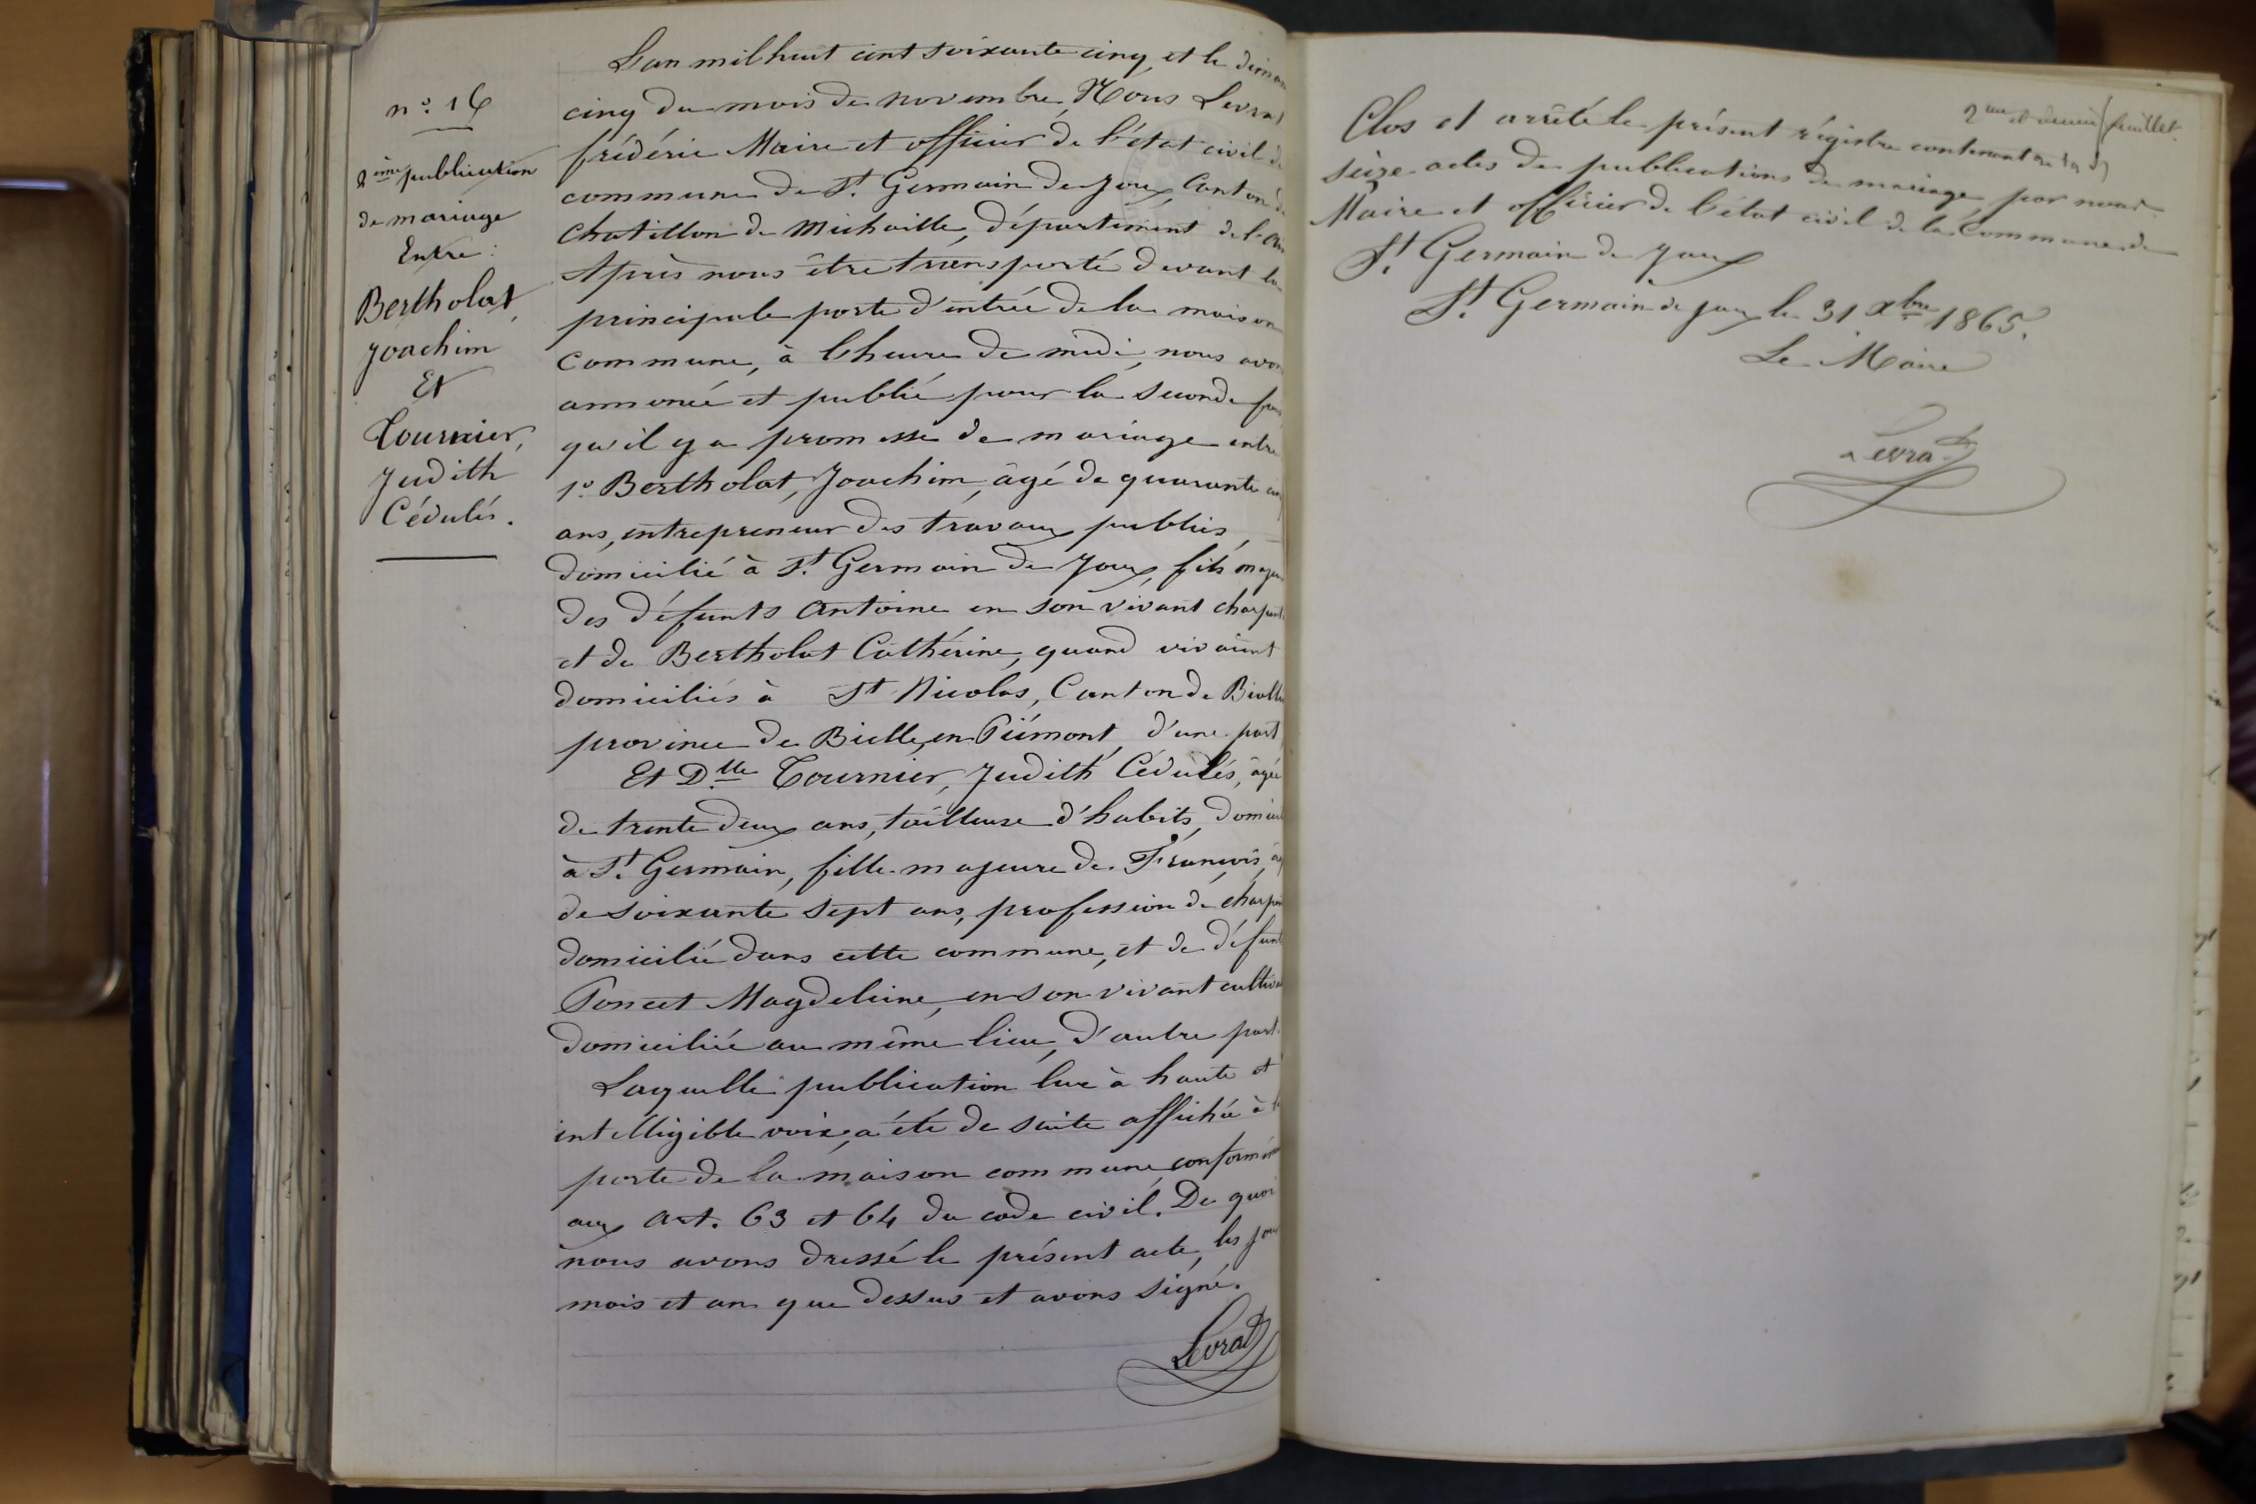 n.º 16
2ème publication
de mariage
Entre :
Bertholat,
Joachim
Et
Tournier,
Judith
Cédulés.
L'an mil huit cent soixante cinq, et le diman
cinq du mois de novembre, Nous Levrat
frédéric Maire et officier de l'état civil de
commune de St. Germain de Joux, Canton de
Chatillon de Michaille, département de l'Ain
Après nous être transporté devant la
principale porte d'entrée de la maison
commune, à l'heure de midi, nous avons
annoncé et publié pour la seconde fois
qu'il y a promesse de mariage entre
1º Bertholat, Joachim, âgé de quarante cinq
ans, entrepreneur des travaux publics,
domicilié à St. Germain de Joux, fils majeur
des défunts Antoine en son vivant charpent
et de Bertholat Cathérine, quand vivaient
domiciliés à St Nicolas, Canton de
province de Bielle, en Piémont, d'une part
Et Dlle Tournier, Judith Cédulés, âgée
de trente deux ans, tailleuse d'habits, domicil
à St. Germain, fille majeure de François, âgé
de soixante sept ans, profession de charpen
domicilié dans cette commune, et de défunte
Poncet Magdeleine, en son vivant cultiva
domiciliée au même lieu, d'autre part.
Laquelle publication lue à haute et
intelligible voix, a été de suite affichée à la
porte de la maison commune, conformém
aux art. 63 et 64 du code civil. De quoi
nous avons dressé le présent acte, les jour
mois et an que dessus et avons signé.
Levrat
2me et dernier feuillet.
Clos et arrêté le présent régistre contenant
seize actes de publications de mariage par nous
Maire et officier de l'état civil de la Commune de
St. Germain de Joux
St. Germain de Joux le 31 Xbre 1865.
Le Maire
Levrat